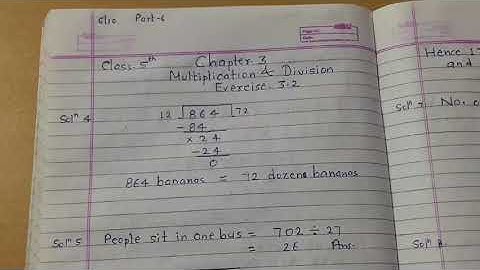 Part-6
Class 5th Chapter 3
Multiplication & Division
Exercise 3.2
Solⁿ 4
12 864 72
-84
× 24
-24
0
864 bananas = 72 dozens bananas
Solⁿ 5 People sit in one bus = 702 ÷ 27
= 26 Ans.
Hence
and
Solⁿ 7 No.
Solⁿ 8